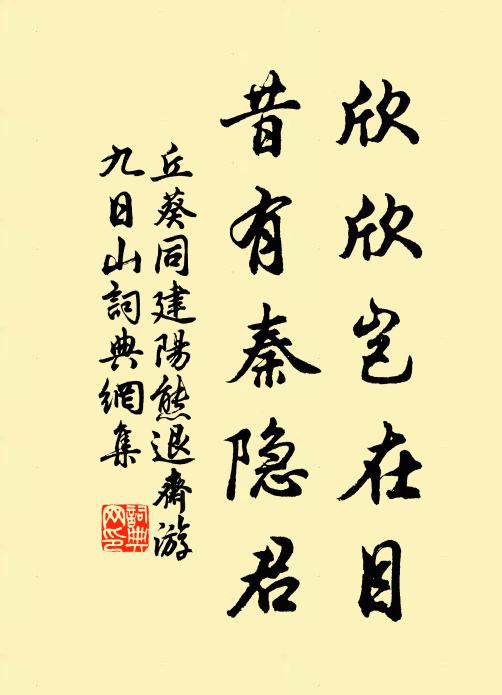 欣欣岂在目
昔有秦隐君
丘葵同建陽熊退齋游
九日山詞典網集
詞典
网印